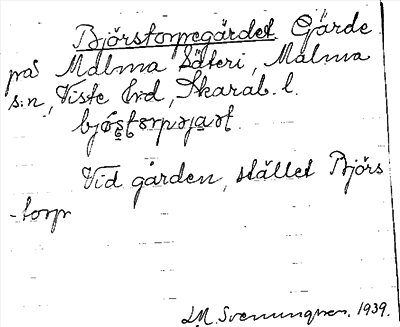 Björstorpegärdet. Gärde
på Malma Säteri, Malma
s:n, Viste hd, Skarab. l.
Vid gården, stället Björs
-torp
1939.